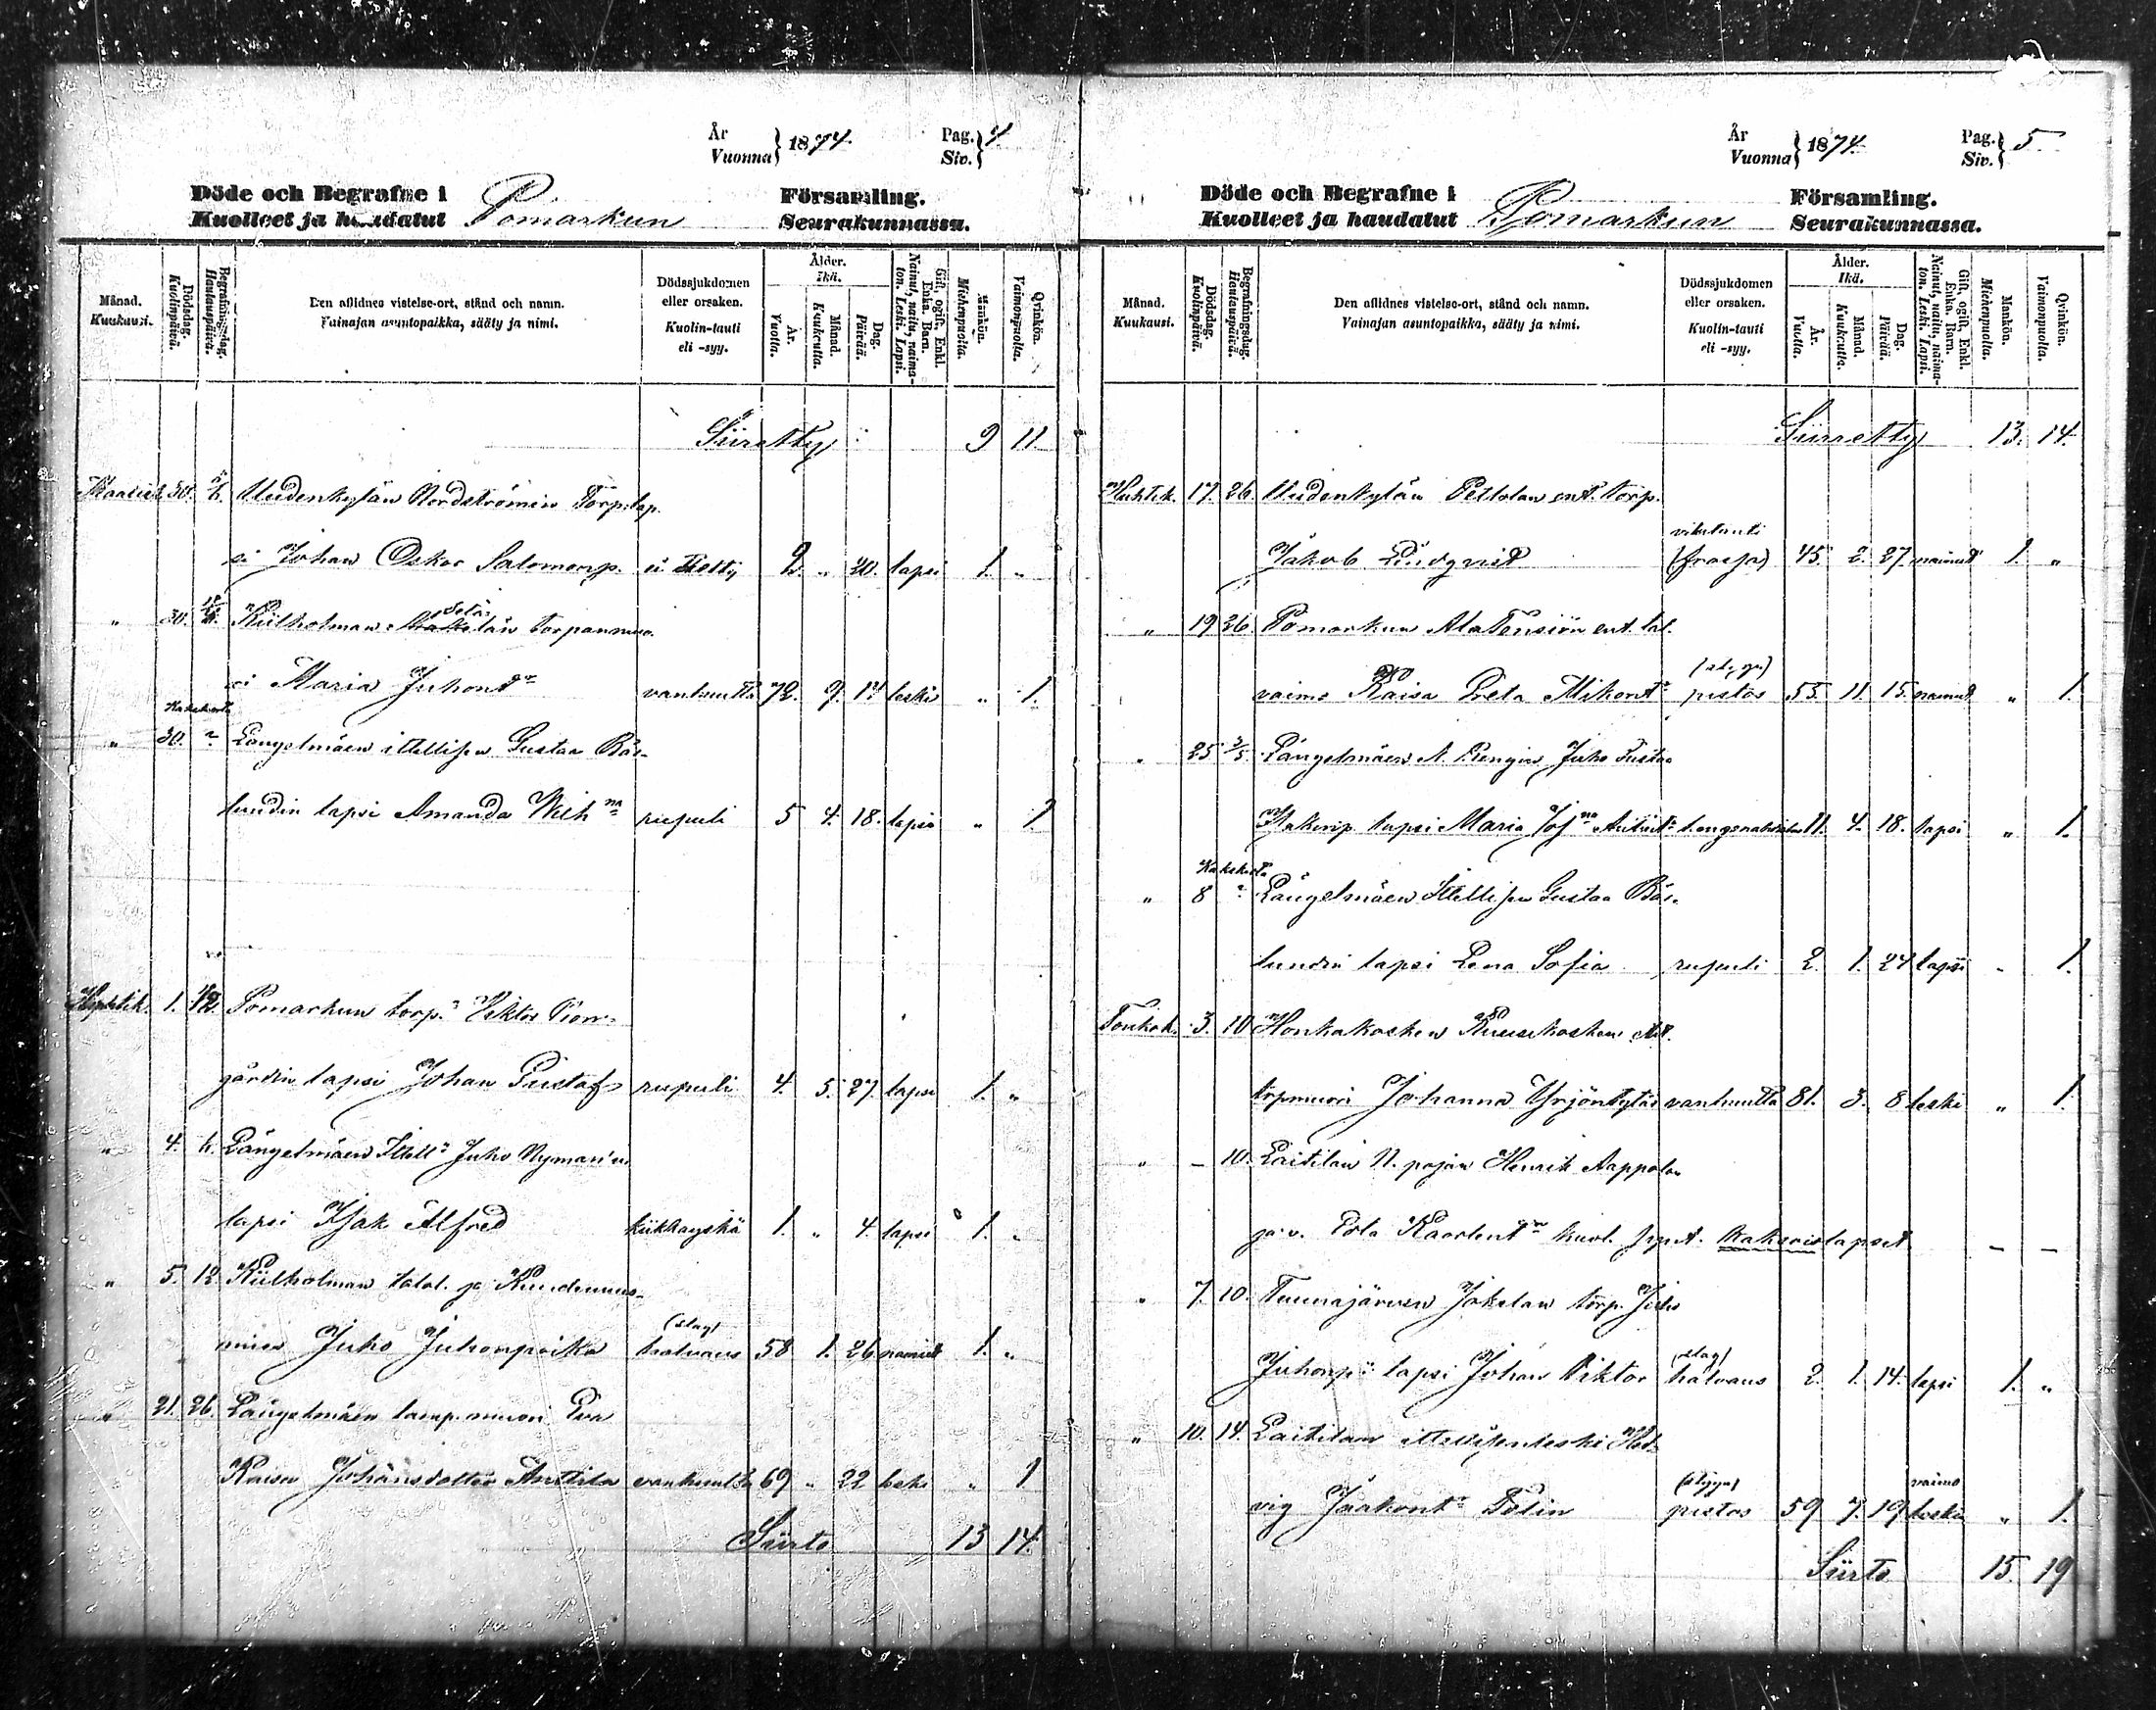 År
Vuonna } 1874. Pag. Siv. } 4.
Döde och Begrafne i Pomarkun Församling.
Kuolleet ja haudatut Seurakunnassa.
Månad. Kuukausi. Dödsdag. Kuolinpäivä. Begrafningsdag. Hautauspäivä. Den aflidnes vistelse-ort, stånd och namn. Vainajan asuntopaikka, sääty ja nimi. Dödssjukdomen eller orsaken. Kuolin-tauti eli -syy. Ålder. Ikä. År. Vuotta. Månad. Kuukautta. Dag. Päivää. Gift, ogift, Enkl. Enka. Barn. Nainut, naitu, naimaton. Leski. Lapsi. Mankön. Miehenpuolta. Qvinkön. Vaimonpuolta.
Siirretty 9 11.
Maalisk. 30. Uudenkylän Nordströmin Torp. lap.
Johan Oskar Salomonp. ei tietty 2. „ 20. lapsi 1. „
„ 30. Kiilholman torpanmuo.
Maria Juhont. vanhuutta 72. 9. 14 leski „ 1.
„ 30. Längelmäen ittellisen Gustaa Bäs-
lundin lapsi Amanda Wilh:na rupuli 5 4. 18. lapsi „ 1.
Huhtik. 1. 12. Pomarkun torp. Viktor
gårdin lapsi Johan Gustaf rupuli 4. 5. 27. lapsi 1. „
„ 4. Längelmäen Ittell. Juho Nyman'in
lapsi Isak Alfred kiikkayskä 1. „ 4. lapsi 1. „
„ 5. 12 Kiilholman talol. ja
mies Juho Juhonpoika (slag) halvaus 58 1. 26. nainut 1. „
„ 21. 26. Längelmäen muori Eva
Kaisa Johansdotter Anttila vanhuutta 69 „ 22 leski „ 1
Siirto 13 14.
År
Vuonna } 1874. Pag. Siv. } 5.
Döde och Begrafne i Pomarkun Församling.
Kuolleet ja haudatut Seurakunnassa.
Månad. Kuukausi. Dödsdag. Kuolinpäivä. Begrafningsdag. Hautauspäivä. Den aflidnes vistelse-ort, stånd och namn. Vainajan asuntopaikka, sääty ja nimi. Dödssjukdomen eller orsaken. Kuolin-tauti eli -syy. Ålder. Ikä. År. Vuotta. Månad. Kuukautta. Dag. Päivää. Gift, ogift, Enkl. Enka. Barn. Nainut, naitu, naimaton. Leski. Lapsi. Mankön. Miehenpuolta. Qvinkön. Vaimonpuolta.
Siirretty 13. 14.
Huhtik. 17. 26. Uudenkylän Peltolan ent. torp.
Jakob Lindqvist vilutauti (frossa) 45. 2. 27 nainut 1. „
„ 19 26. Pomarkun AlaTensiön ent. tal.
vaimo Kaisa Greta Mikont. pistos 55. 11. 15. nainut „ 1.
„ 25 3/5. Längelmäen N. Rengin Juho Gustaa
Isakinp. lapsi Maria 11. 4. 18. lapsi „ 1.
„ 8 Längelmäen Ittellisen Gustaa Bäs-
lundin lapsi Lena Sofia rupuli 2. 1. 24 lapsi „ 1.
Toukok. 3. 10 Honkakosken Kuusikosken
torpmuori Johanna Yrjöntytär vanhuutta 81. 3. 8 leski „ 1.
„ – 10. Laitilan N. pojan Henrik Aappolan
ja v. Kaarlent. kuol. synt. kaksoislapset – –
„ 7. 10. Tuunajärven Jokelan torp. Juho
Juhonp. lapsi Johan Viktor (slag) halvaus 2. 1. 14. lapsi 1. „
„ 10. 14. Laitilan ittellisenleski Hed-
vig Jaakont. Tolin pistos 59 7. 19 vaimo leski „ 1.
Siirto 15. 19